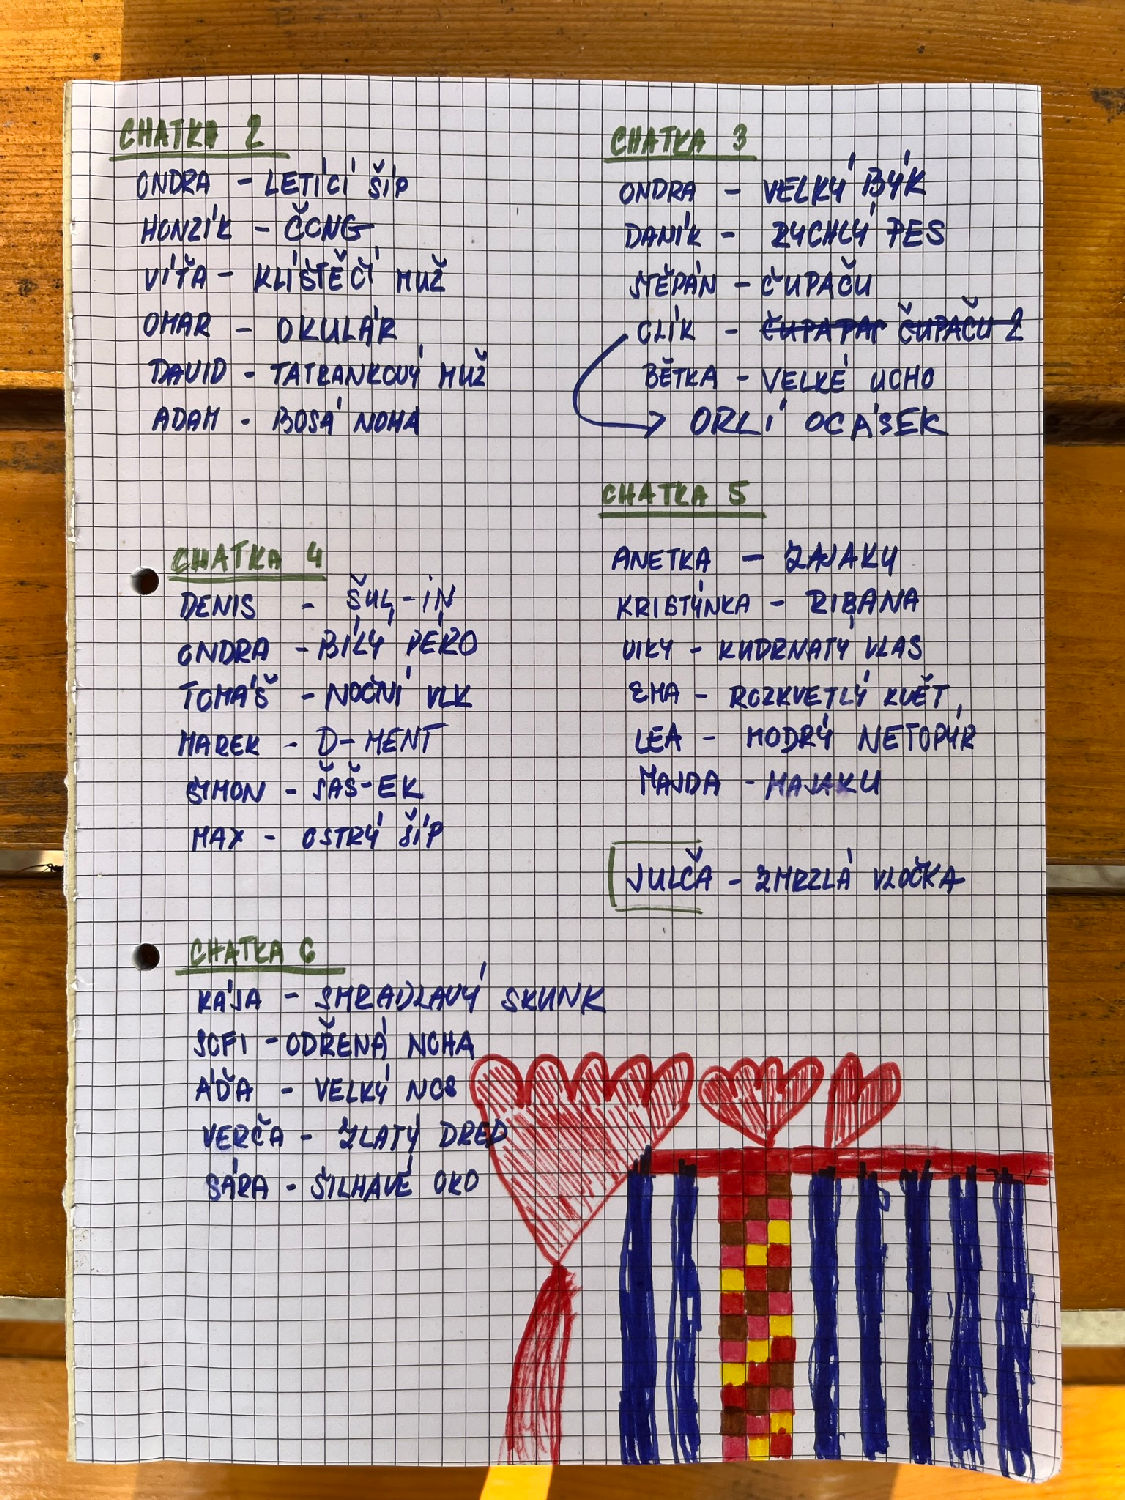 CHATKA 2
ONDRA - LETÍCÍ ŠÍP
HONZÍK - ČONG
VÍŤA - KLÍŠTĚČÍ MUŽ
OMAR - OKULÁR
DAVID - TATRANKOVÝ MUŽ
ADAM - BOSÁ NOHA
CHATKA 3
ONDRA - VELKÝ BÝK
DANÍK - RYCHLÝ PES
ŠTĚPÁN - ČUPAČU
OLÍK - ČUPAČU 2
BĚTKA - VELKÉ UCHO
ORLÍ OCÁSEK
CHATKA 4
DENIS - ŠUL-IN
ONDRA - BÍLÝ PÉRO
TOMÁŠ - NOČNÍ VLK
MAREK - D-MENT
ŠIMON - ŠAŠ-EK
MAX - OSTRÝ ŠÍP
CHATKA 5
ANETKA - ZAJAKU
KRISTÝNKA - RIBANA
VIKY - KUDRNATÝ VLAS
EMA - ROZKVETLÝ KVĚT
LEA - MODRÝ NETOPÝR
MAJDA - MAJAKU
JULČA - ZMRZLÁ VLOČKA
CHATKA 6
KÁJA - SMRADLAVÝ SKUNK
SOFI - ODŘENÁ NOHA
ÁĎA - VELKÝ NOS
VERČA - ZLATÝ DRED
SÁRA - ŠILHAVÉ OKO